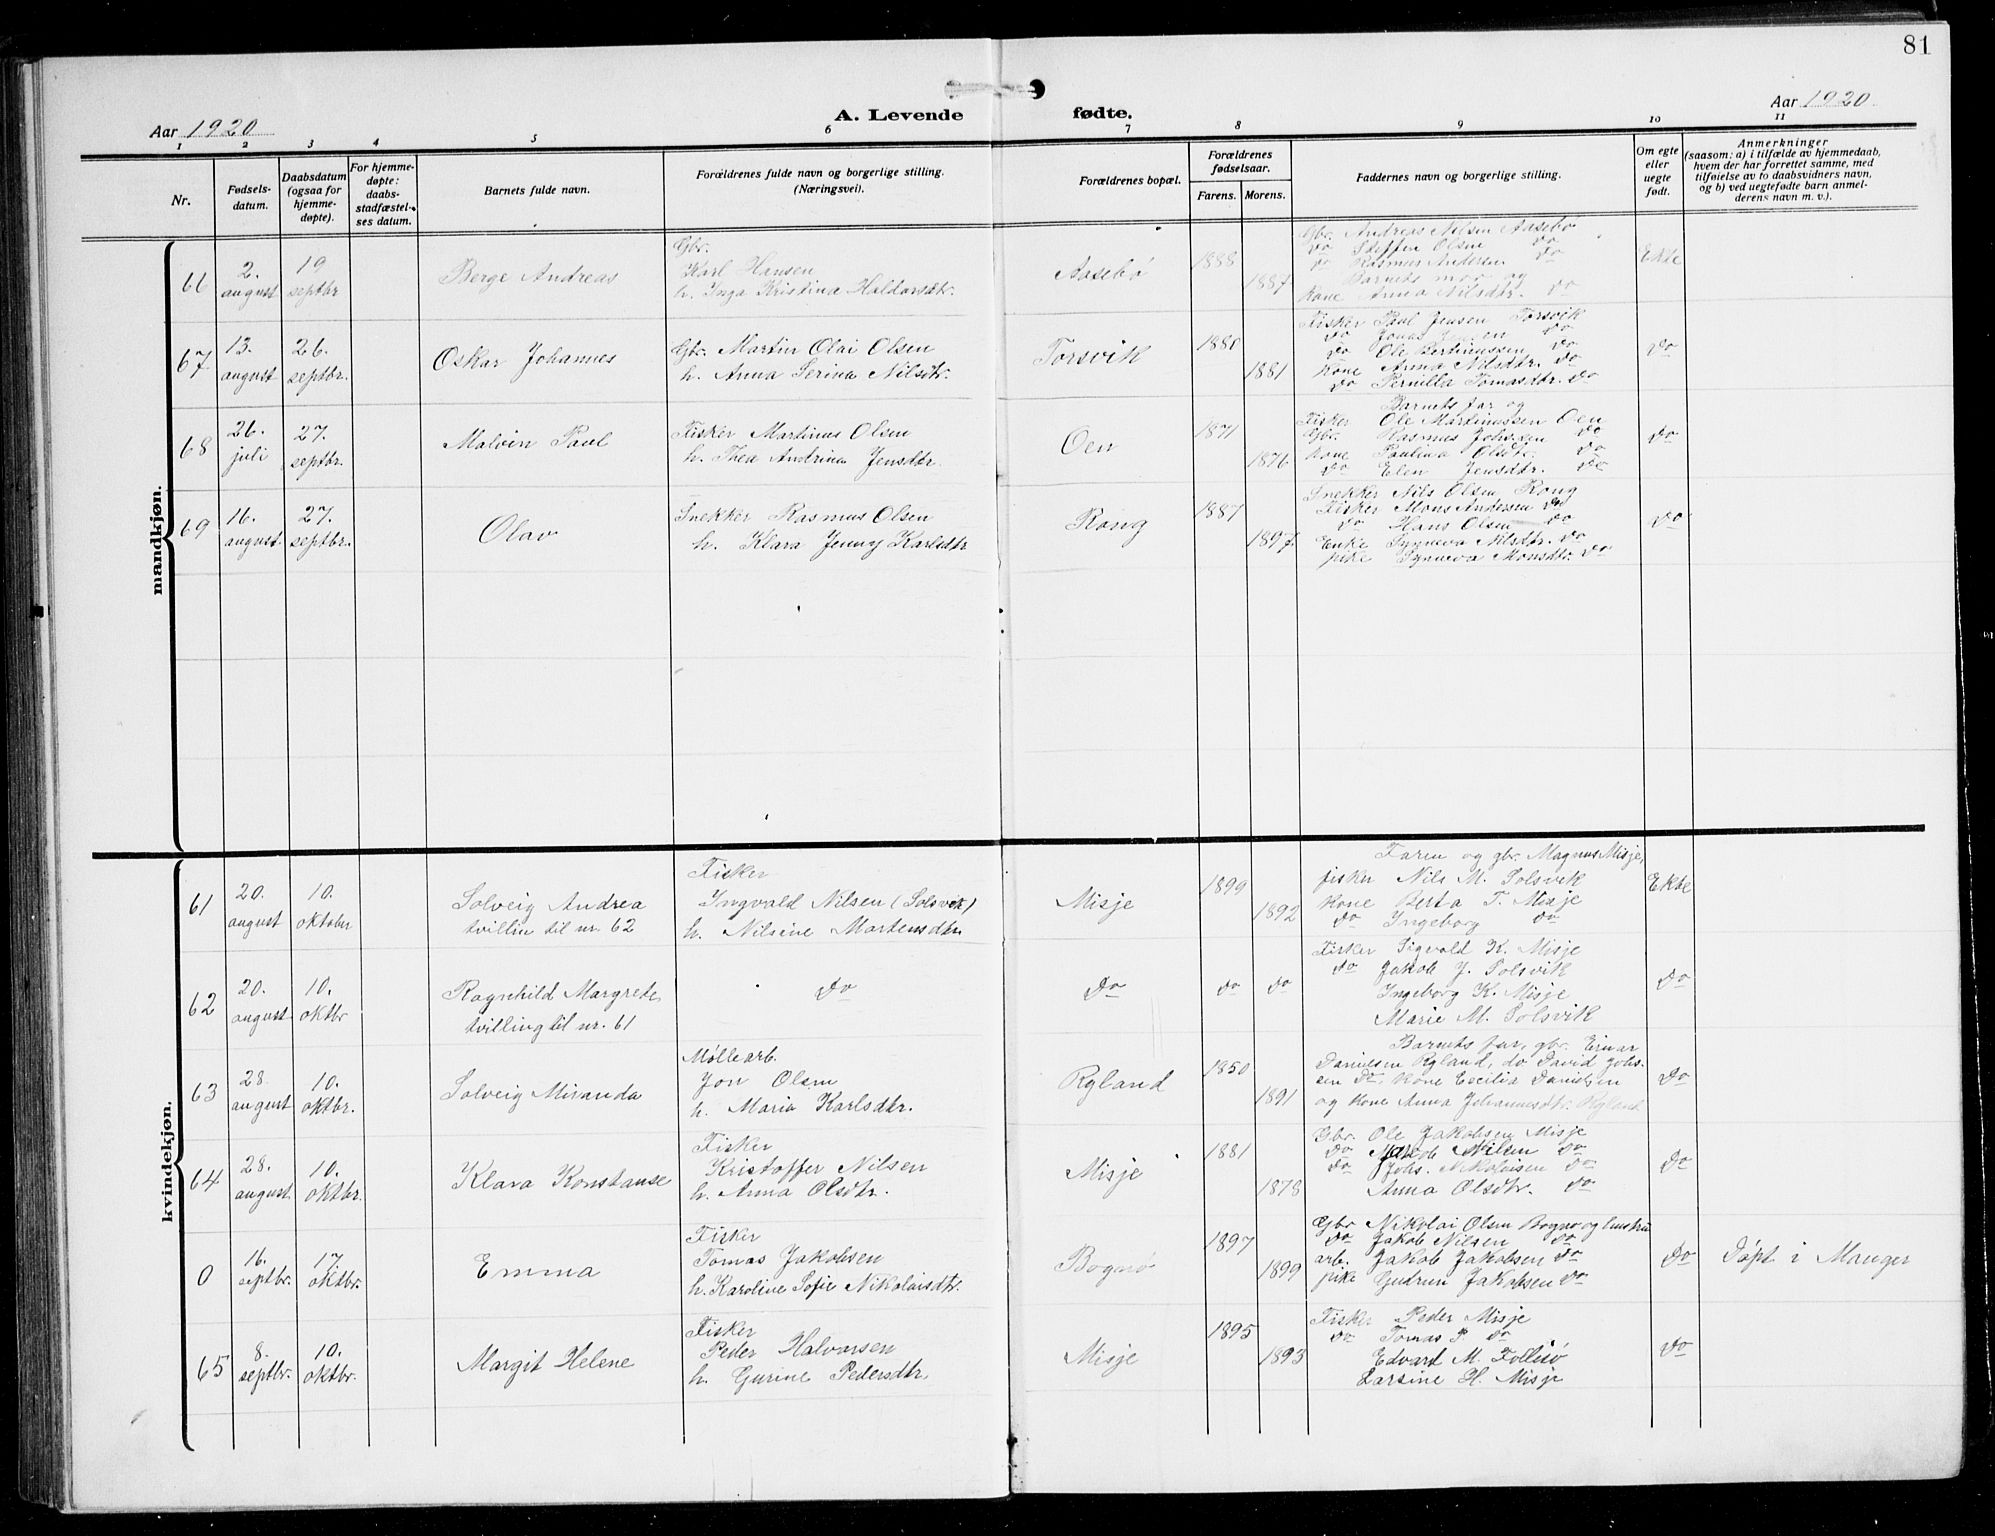 81
Aar 1920
A. Levende fødte.
Aar 1920
1 2 3 4 5 6 7 8 9 10 11
Nr.
Fødsels-
datum.
Daabsdatum
(ogsaa for
hjemme-
døpte).
For hjemme-
døpte:
daabs-
stadfæstel-
ses datum.
Barnets fulde navn.
Forældrenes fulde navn og borgerlige stilling.
(Næringsvei).
Forældrenes bopæl.
Forældrenes
fødselsaar.
Farens. Morens.
Faddernes navn og borgerlige stilling.
Om egte
eller
uegte
født.
Anmerkninger
(saasom: a) i tilfælde av hjemmedaab,
hvem der har forrettet samme, med
tilføielse av to daabsvidners navn,
og b) ved uegtefødte barn anmel-
derens navn m. v.).
mandkjøn.
2.
august
19
septbr
Berge Andreas
Gbr.
Karl Hansen
h. Inga Kristina Haldorsdtr.
Aasebø
1888
1887
Gbr. Andreas Nilsen Aasebø
do Steffen Olsen do
do Rasmus Andersen do
Barnets mor og
Kone Anna Nilsdtr. do
Ekte
67
13.
august
26.
septbr.
Oskar Johannes
Gbr. Martin Olai Olsen
h. Anna Serina Nilsdtr.
Torsvik
1881
Fisker Paul Jensen Torsvik
do Jonas do
do Ole Bertinussen do
Kone Anna Nilsdtr. do
do Pernilla Tomasdtr. do
do
68
26.
juli
27.
septbr.
Malvin Paul
Fisker Martinus Olsen
h. Thea Andrina Jensdtr.
Oen
1871
1876
Barnets far og
Fisker Ole Martinussen Oen
Gbr. Rasmus Johssen do
Kone Paulina Olsdtr. do
do Elen Jensdtr. do
do
69
16.
august
27.
septbr.
Olav
Snekker Rasmus Olsen
h. Klara Jenny Karlsdtr
Rong
1887
1897.
Snekker Nils Olsen Rong
Fisker Mons Andersen do
do Hans Olsen do
Enke Synneva Nilsdtr. do
pike Synneva Monsdtr. do
do
kvindekjøn.
61
20.
august
10.
oktober
Solveig Andrea
tvillin til nr. 62
Fisker
Ingvald Nilsen (Solsvik)
h. Nilsine Martensdtr.
Misje
1899
1892
Faren og gbr. Magnus Misje,
fisker Nils M. Solsvik
Kone Berta T. Misje
do Ingeborg do
Ekte
62
20.
august
10.
oktbr
Ragnhild Margrete
tvilling til nr. 61
do
do
do do
Fisker Sigvald K. Misje
do Jakob J. Solsvik
Ingeborg K. Misje
Marie M. Solsvik
do
63
28.
august
10.
oktbr.
Solveig Miranda
Møllearb.
Jon Olsen
h. Maria Karlsdtr.
Rylan̄d
1850
1891
Barnets far, gbr. Einar
Danielsen Rylan̄d, do David Johs-
sen do. Kone Cecilia Danielsen
og Kone Anna Johannesdtr. Ryland
do
64
28.
august
10.
oktbr.
Klara Konstanse
Fisker
Kristoffer Nilsen
h. Anna Olsdtr.
Misje
1881
1878
Gbr. Ole Jakobsen Misje
do Jakob Nilsen do
do Johs. Nikolaisen do
Anna Olsdtr. do
do
0
16.
septbr.
17.
oktbr.
Emma
Fisker
Tomas Jakobsen
h. Karoline Sofie Nikolaisdtr.
Bognø
1897
1899
Gbr Nikolai Olsen Bognø og hustru
do Jakob Nilsen do
arb. Jakob Jakobsen do
pike Gudrun Jakobsen do
do
Døpt i Manger
65
8.
septbr.
10.
oktbr.
Margit Helene
Fisker
Peder Halvorsen
h. Gurine Pedersdtr.
Misje
1895
1893
Fisker Peder Misje
do Tomas P. do
Edvard M. Follesø
Larsine H. Misje
do